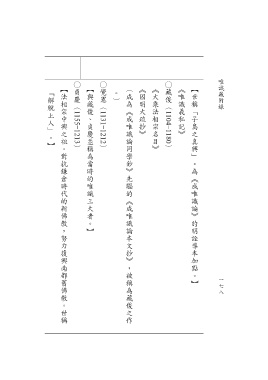 唯識藏附錄
一七八
【世稱「子島之真興」，為《成唯識論》的明詮導本加點。】
《唯識義私記》
○藏俊（1104-1180）
《大乘法相宗名目》
《因明大疏抄》
（成為《成唯識論同學鈔》先驅的《成唯識論本文抄》，被稱為藏俊之作
。）
○覺憲（1131-1212）
【與藏俊、貞慶並稱為當時的唯識三大者。】
○貞慶（1155-1213）
【法相宗中興之祖。對抗鎌倉時代的新佛教，努力復興南都舊佛教。世稱
『解脫上人』。】